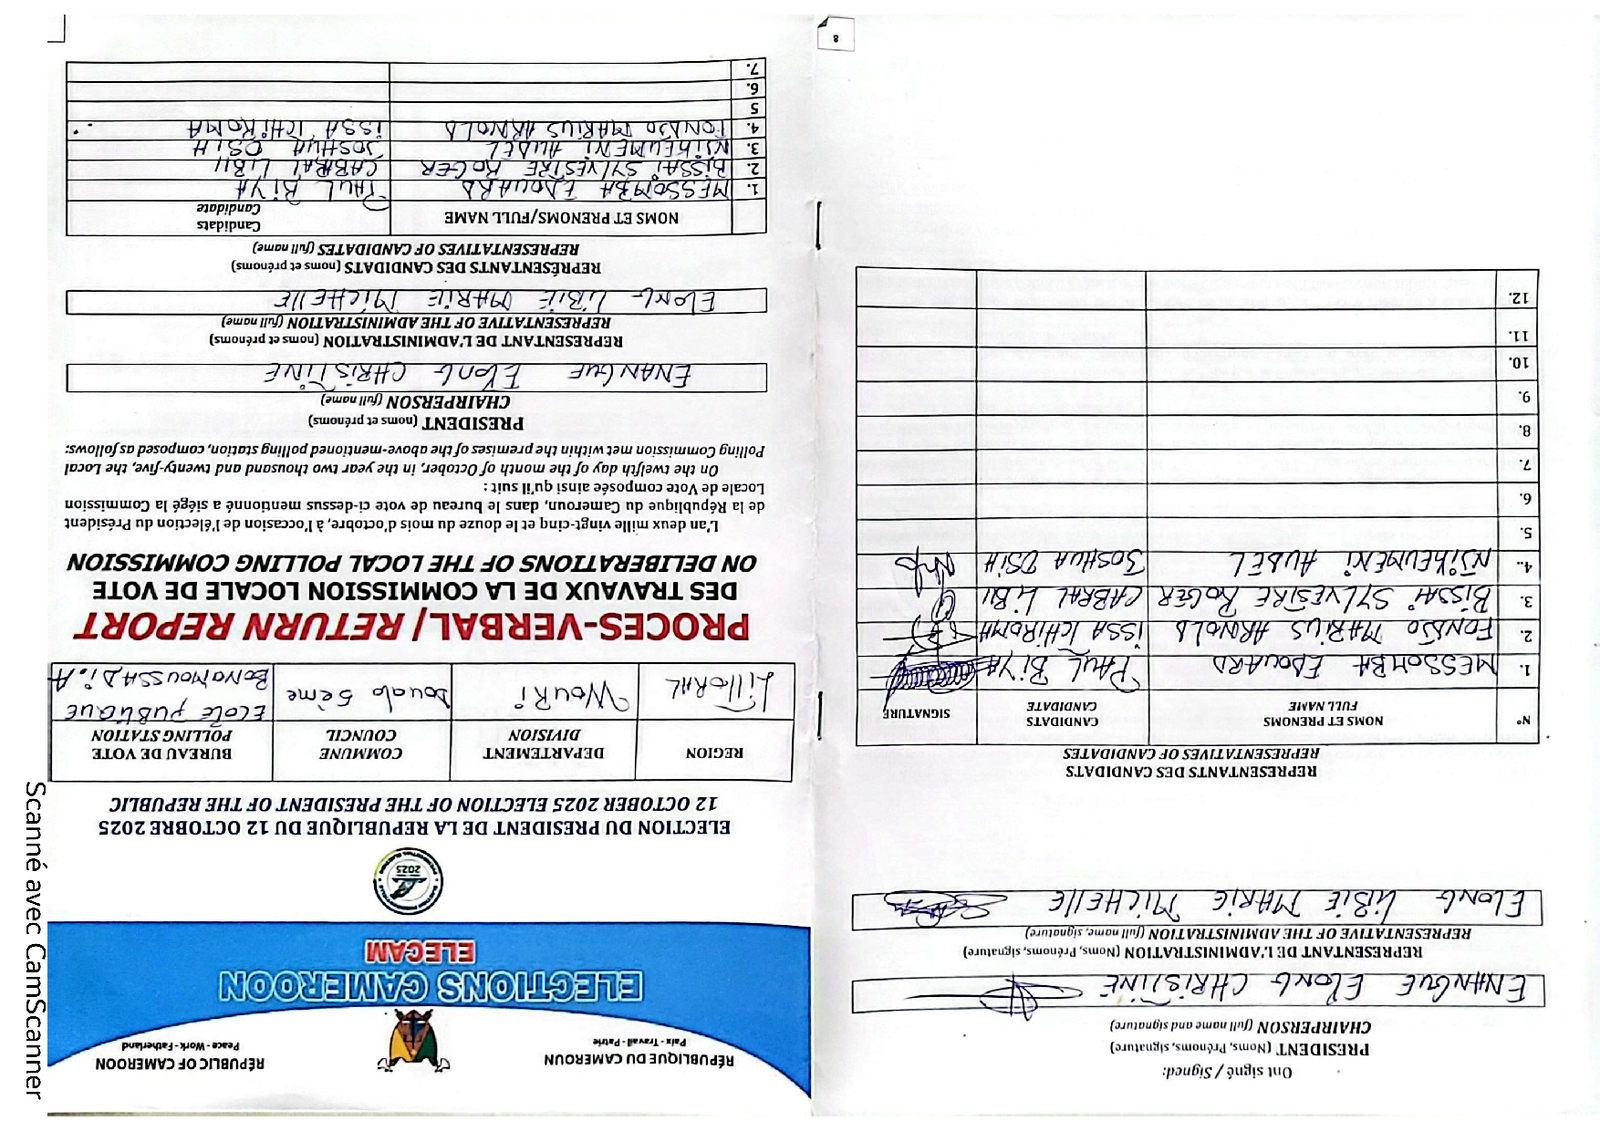 RÉPUBLIQUE DU CAMEROUN
Paix - Travail - Patrie
RÉPUBLIC OF CAMEROON
Peace - Work - Fatherland
ELECTIONS CAMEROON
ELECAM
2025
ELECTION DU PRESIDENT DE LA REPUBLIQUE DU 12 OCTOBRE 2025
12 OCTOBER 2025 ELECTION OF THE PRESIDENT OF THE REPUBLIC
REGION
DEPARTEMENT
DIVISION
COMMUNE
COUNCIL
BUREAU DE VOTE
POLLING STATION
LITTORAL
WOURI
Douala 5ème
ECOLE PUBLIQUE
BONAMOUSSADI. A
PROCES-VERBAL/ RETURN REPORT
DES TRAVAUX DE LA COMMISSION LOCALE DE VOTE
ON DELIBERATIONS OF THE LOCAL POLLING COMMISSION
L'an deux mille vingt-cinq et le douze du mois d'octobre, à l'occasion de l'élection du Président
de la République du Cameroun, dans le bureau de vote ci-dessus mentionné a siégé la Commission
Locale de Vote composée ainsi qu'il suit :
On the twelfth day of the month of October, in the year two thousand and twenty-five, the Local
Polling Commission met within the premises of the above-mentioned polling station, composed as follows:
PRESIDENT (noms et prénoms)
CHAIRPERSON (full name)
ENANGUE ELONG CHRISTINE
REPRESENTANT DE L'ADMINISTRATION (noms et prénoms)
REPRESENTATIVE OF THE ADMINISTRATION (full name)
ELONG LIBIE MARIE MICHELLE
REPRÉSENTANTS DES CANDIDATS (noms et prénoms)
REPRESENTATIVES OF CANDIDATES (full name)
NOMS ET PRENOMS/FULL NAME
Candidats
Candidate
1. MESSOMBA EDOUARD PAUL BIYA
2. BISSAI SYLVESTRE ROGER CABRAL LIBII
3. NJIKEUMENI AUDEL JOSHUA OSIH
4. FONDJO MARIUS ARNOLD ISSA TCHIROMA
5
6.
7.
Ont signé / Signed:
PRESIDENT (Noms, Prénoms, signature)
CHAIRPERSON (full name and signature)
ENANGUE ELONG CHRISTINE
REPRESENTANT DE L'ADMINISTRATION (Noms, Prénoms, signature)
REPRESENTATIVE OF THE ADMINISTRATION (full name, signature)
ELONG LIBIE MARIE MICHELLE
REPRESENTANTS DES CANDIDATS
REPRESENTATIVES OF CANDIDATES
N°
NOMS ET PRENOMS
FULL NAME
CANDIDATS
CANDIDATE
SIGNATURE
1. MESSOMBA EDOUARD PAUL BIYA
2. FONDJO MARIUS ARNOLD ISSA TCHIROMA
3. BISSAI SYLVESTRE ROGER CABRAL LIBII
4.. NJIKEUMENI AUDEL JOSHUA OSIH
5.
6.
7.
8.
9.
10.
11.
12.
8
Scanné avec CamScanner